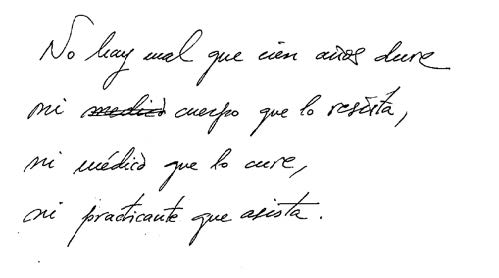 No hay mal que cien años dure
ni medico cuerpo que lo resista,
ni médico que lo cure,
ni practicante que asista.